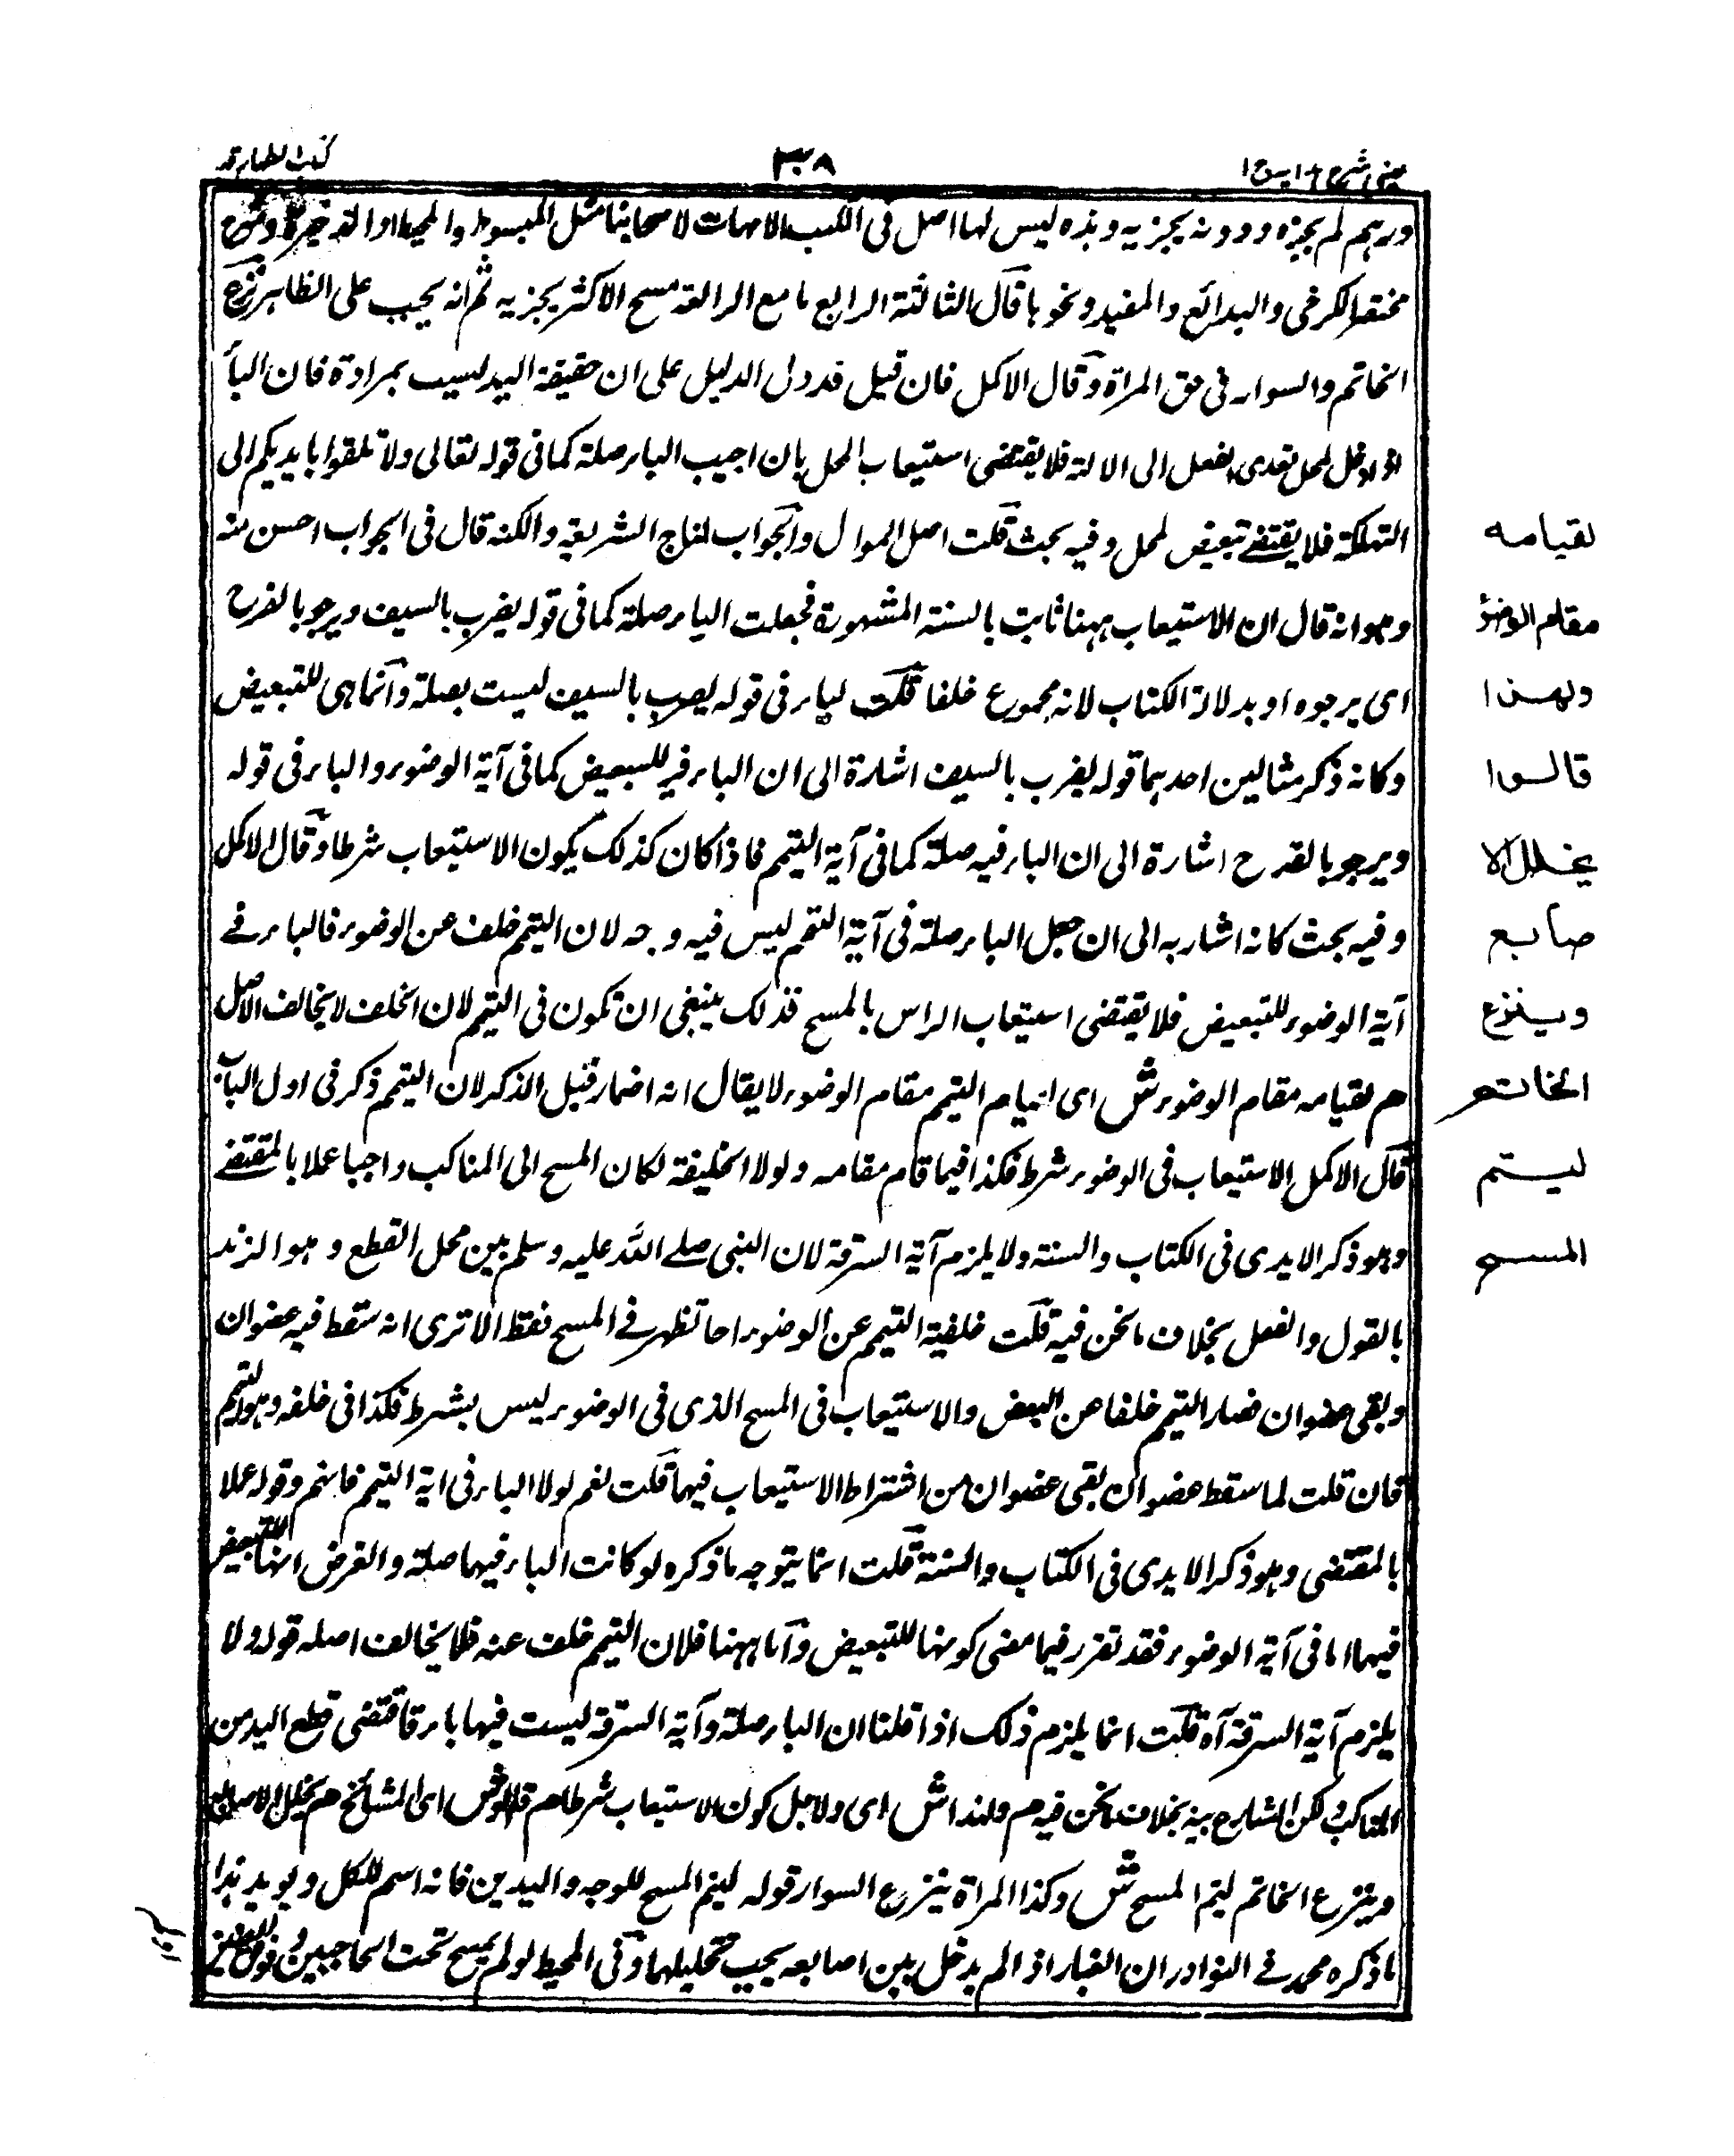 عینی شرح ہدایہ ج ا
٣٠٨
کتاب الطہارة
درہم لم یجزہ ودونہ یجزیہ وہذہ لیس لہا اصل فی الکتب الامہات لاصحابنا مثل المبسوط والمحیط والذخیرة وشرح
مختصر الکرخی والبدائع والمفید ونحوہا قال الثالثة الرابع مامع الرابعة مسح الاکثر یجزیہ ثم انہ یجب علی الظاہر نزع
الخاتم والسوار فی حق المراة وقال الاکمل فان قیل قد دل الدلیل علی ان حقیقة الید لیست بمرادة فان الباء
اذا دخل المحل تعدی الفعل الی الالة فلا یقتضی استیعاب المحل بان اجیب الباء صلة کما فی قولہ تعالی ولا تلقوا بایدیکم الی
التہلکة فلا یقتضے تبعیض المحل وفیہ بحث قلت اصل السوال والجواب لتاج الشریعة والکنہ قال فی الجواب احسن منہ
وہو انہ قال ان الاستیعاب ہہنا ثابت بالسنة المشہورة فجعلت الباء صلة کما فی قولہ یضرب بالسیف ویرجو بالفرح
ای یرجوہ او بدلالة الکتاب لانہ مجموع خلفا قلت الباء فی قولہ یضرب بالسیف لیست بصلة وانما ہی للتبعیض
وکانہ ذکر مثالین احدہما قولہ یضرب بالسیف اشارة الی ان الباء فیہ للتبعیض کما فی آیة الوضوء والباء فی قولہ
ویرجو بالفرح اشارة الی ان الباء فیہ صلة کما فی آیة التیمم فاذا کان کذلک یکون الاستیعاب شرطا وقال الاکمل
وفیہ بحث کانہ اشار بہ الی ان جعل الباء صلة فی آیة التیمم لیس فیہ وجہ لان التیمم خلف عن الوضوء فالباء فے
آیة الوضوء للتبعیض فلا یقتضی استیعاب الراس بالمسح فذلک ینبغی ان تکون فی التیمم لان الخلف لا یخالف الاصل
ھم لقیامہ مقام الوضوء ش ای لقیام التیمم مقام الوضوء لا یقال انہ اضمار قبل الذکر لان التیمم ذکر فی اول الباب
قال الاکمل الاستیعاب فی الوضوء شرط فکذا فیما قام مقامہ ولولا الخلیفة لکان المسح الی المناکب واجبا عملا بالمقتضے
وہو ذکر الایدی فی الکتاب والسنة ولا یلزم آیة السرقة لان النبی صلے اللہ علیہ وسلم بین محل القطع وہو الزند
بالقول والفعل بخلاف مانحن فیہ قلت خلفیة التیمم عن الوضوء احا تظہر فے المسح فقط الا تری انہ سقط فیہ عضوان
وبقی عضوان فصار التیمم خلفا عن البعض والاستیعاب فی المسح الذی فی الوضوء لیس بشرط فکذا فی خلفہ وہو التیمم
فان قلت لما سقط عضوان بقی عضوان من اشتراط الاستیعاب فیہا قلت نعم لولا الباء فی ایة التیمم فافہم وقولہ عملا
بالمقتضی وہو ذکر الایدی فی الکتاب والسنة قلت انما یتوجہ ماذکرہ لو کانت الباء فیہما صلة والفرض انہا للتبعیض
فیہما اما فی آیة الوضوء فقد تقرر فیما مضی کونہا للتبعیض واما ہہنا فلان التیمم خلف عنہ فلا یخالف اصلہ قولہ ولا
یلزم آیة السرقة آہ قلت انما یلزم ذلک اذا قلنا ان الباء صلة وآیة السرقة لیست فیہا باء فاقتضی قطع الید من
المناکب ولکن الشارع بینہ بخلاف مانحن فیہ م ولہذا ش ای ولاجل کون الاستیعاب شرطا م قالوا ش ای المشائخ م یخلل الاصابع
وینزع الخاتم لیتم المسح ش وکذا المراة ینزع السوار قولہ لیتم المسح للوجہ والیدین فانہ اسم للکل ویوید ہذا
ماذکرہ محمد فے النوادر ان الغبار اذا لم یدخل بین اصابعہ یجب تخلیلہا وفی المحیط لو لم یمسح تحت الحاجبین وفوق العینین
لقیامہ
مقام الوضوٴ
ولھذا
قالوا
یخلل الا
صابع
وینزع
الخاتم
لیتم
المسح